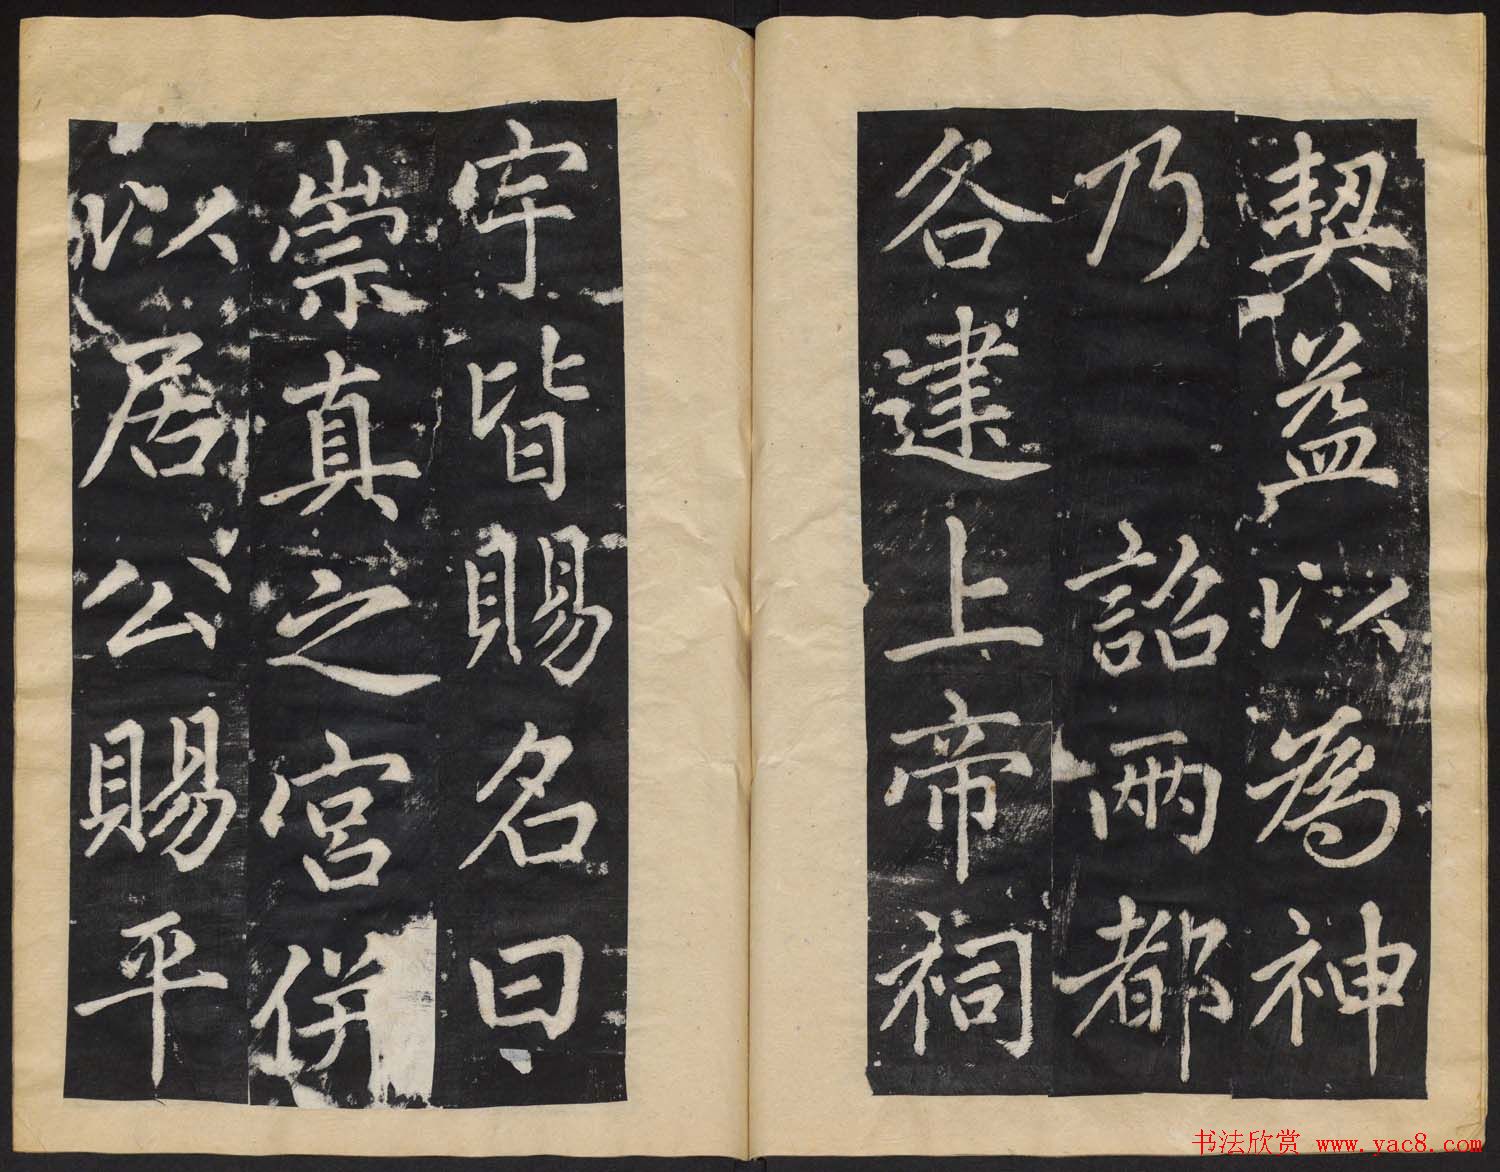 契益以為神
乃詔兩都
各建上帝祠
宇皆賜名曰
崇真之宮併
以居公賜平
书法欣赏 www.yac8.com